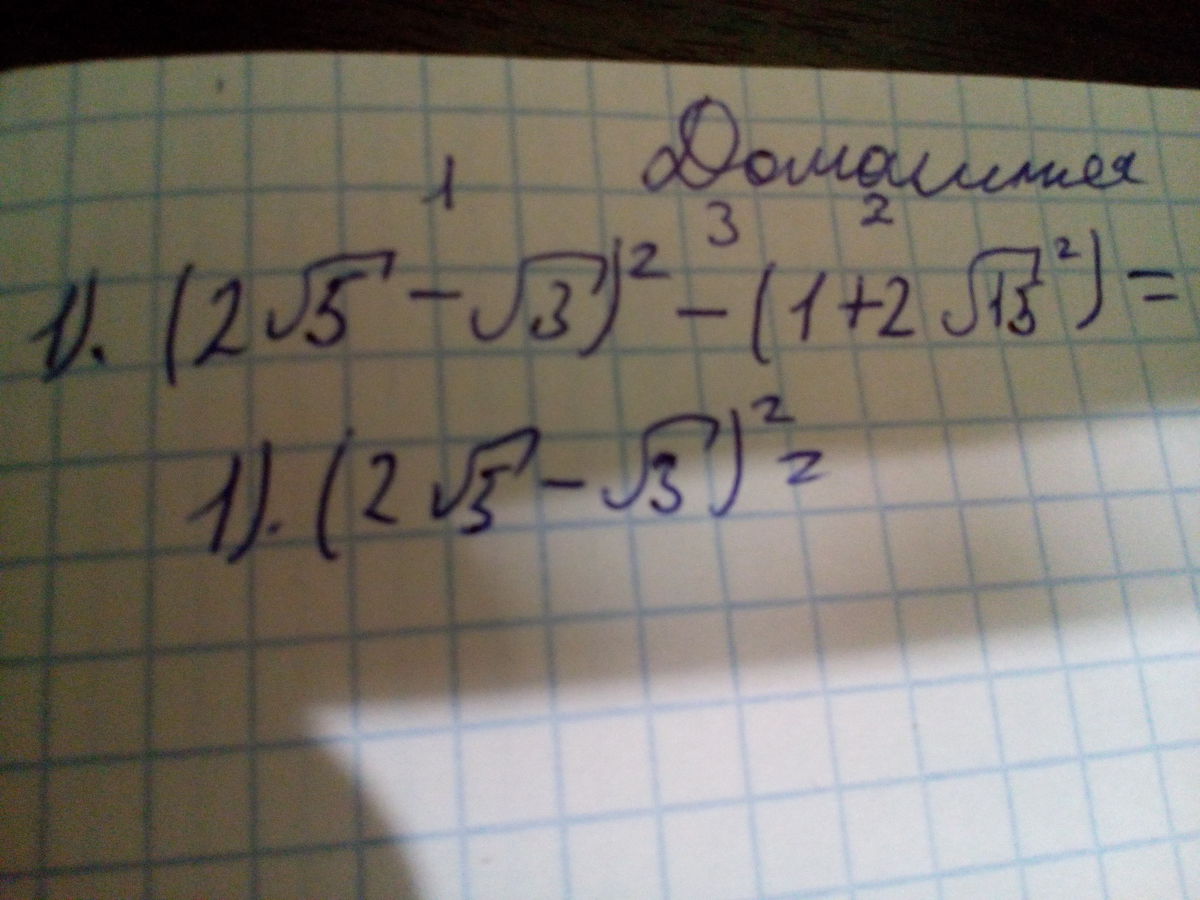 Домашняя
1 3 2
1). (2√5 - √3)² - (1+2√15²) =
1). (2√5 - √3)² =